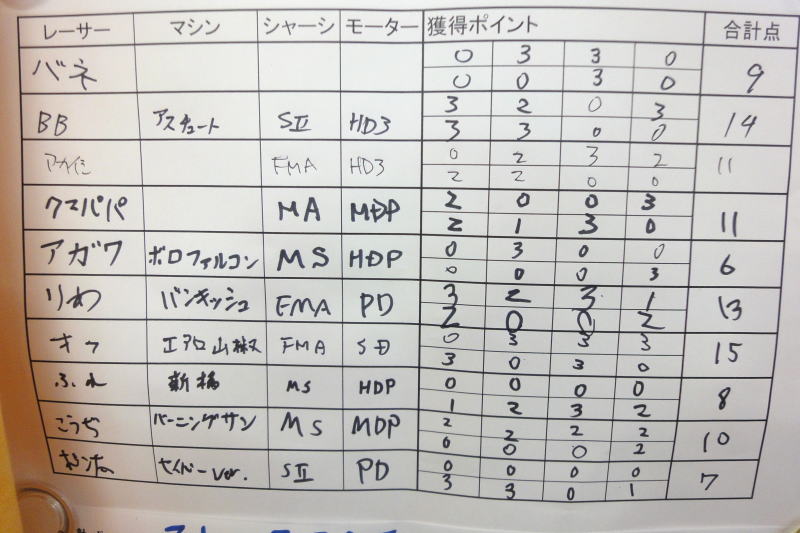 レーサー マシン シャーシ モーター 獲得ポイント 合計点
バネ 0 3 3 0 9
0 0 3 0
BB アスチュート SII HD3 3 2 0 3 14
3 3 0 0
FMA HD3 0 2 3 2 11
2 2 0 0
クマパパ MA MDP 2 0 0 3 11
2 1 3 0
アガワ ボロファルコン MS HDP 0 3 0 0 6
0 0 0 3
りわ バンキッシュ FMA PD 3 2 3 1 13
2 0 0 2
オフ エアロ山椒 FMA SD 0 3 3 3 15
3 0 3 0
ふれ 新橋 MS HDP 0 0 0 0 8
1 2 3 2
こうぢ バーニングサン MS MDP 2 2 2 2 10
0 0 0 2
セイバーVer. SII PD 0 0 0 0 7
3 3 0 1